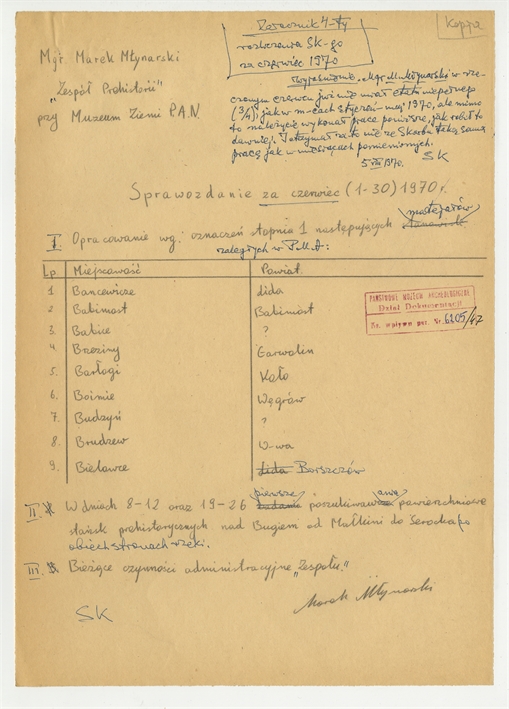 Kopja
Załącznik 4-ty
rozliczenia SK-go
za czerwiec 1970
Mgr. Marek Młynarski
"Zespół Prehistorii"
przy Muzeum Ziemi P.A.N.
Wyjaśnienie. Mgr. M. Młynarski w rze-
czonym czerwcu już nie miał etatu niepełnego
(3/4), jak w m-cach styczeń-maj 1970, ale mimo
to należycie wykonał prace poniższe, jak robił to
dawniej. Otrzymał za to nie ze Skarbu taką samą
pracę jak w miesiącach pomienionych.
5 VII 1970. SK
Sprawozdanie za czerwiec (1-30) 1970 r.
materiałów
I. Opracowanie wg. oznaczeń stopnia 1 następujących
zaległych w P.M.A:
Lp. Miejscowość Powiat
1. Bancewicze Lida
2 Babimost Babimost
3. Babice ?
4. Brzeziny Garwolin
5. Barłogi Koło
6. Boimie Węgrów
7. Budzyń ?
8. Brudzew W-wa
9. Bielawce Lida Borszczów
PAŃSTWOWE MUZEUM ARCHEOLOGICZNE
Dział Dokumentacji
Nr. wpływu pst. Nr. 6205/47
pierwsze awcze
II. W dniach 8-12 oraz 19-26 badania poszukiwawcze powierzchniowe
stanisk prehistorycznych nad Bugiem od Małkini do Serocka po
obiech stronach rzeki.
III. Bieżące czynności administracyjne "Zespołu."
Marek Młynarski
SK